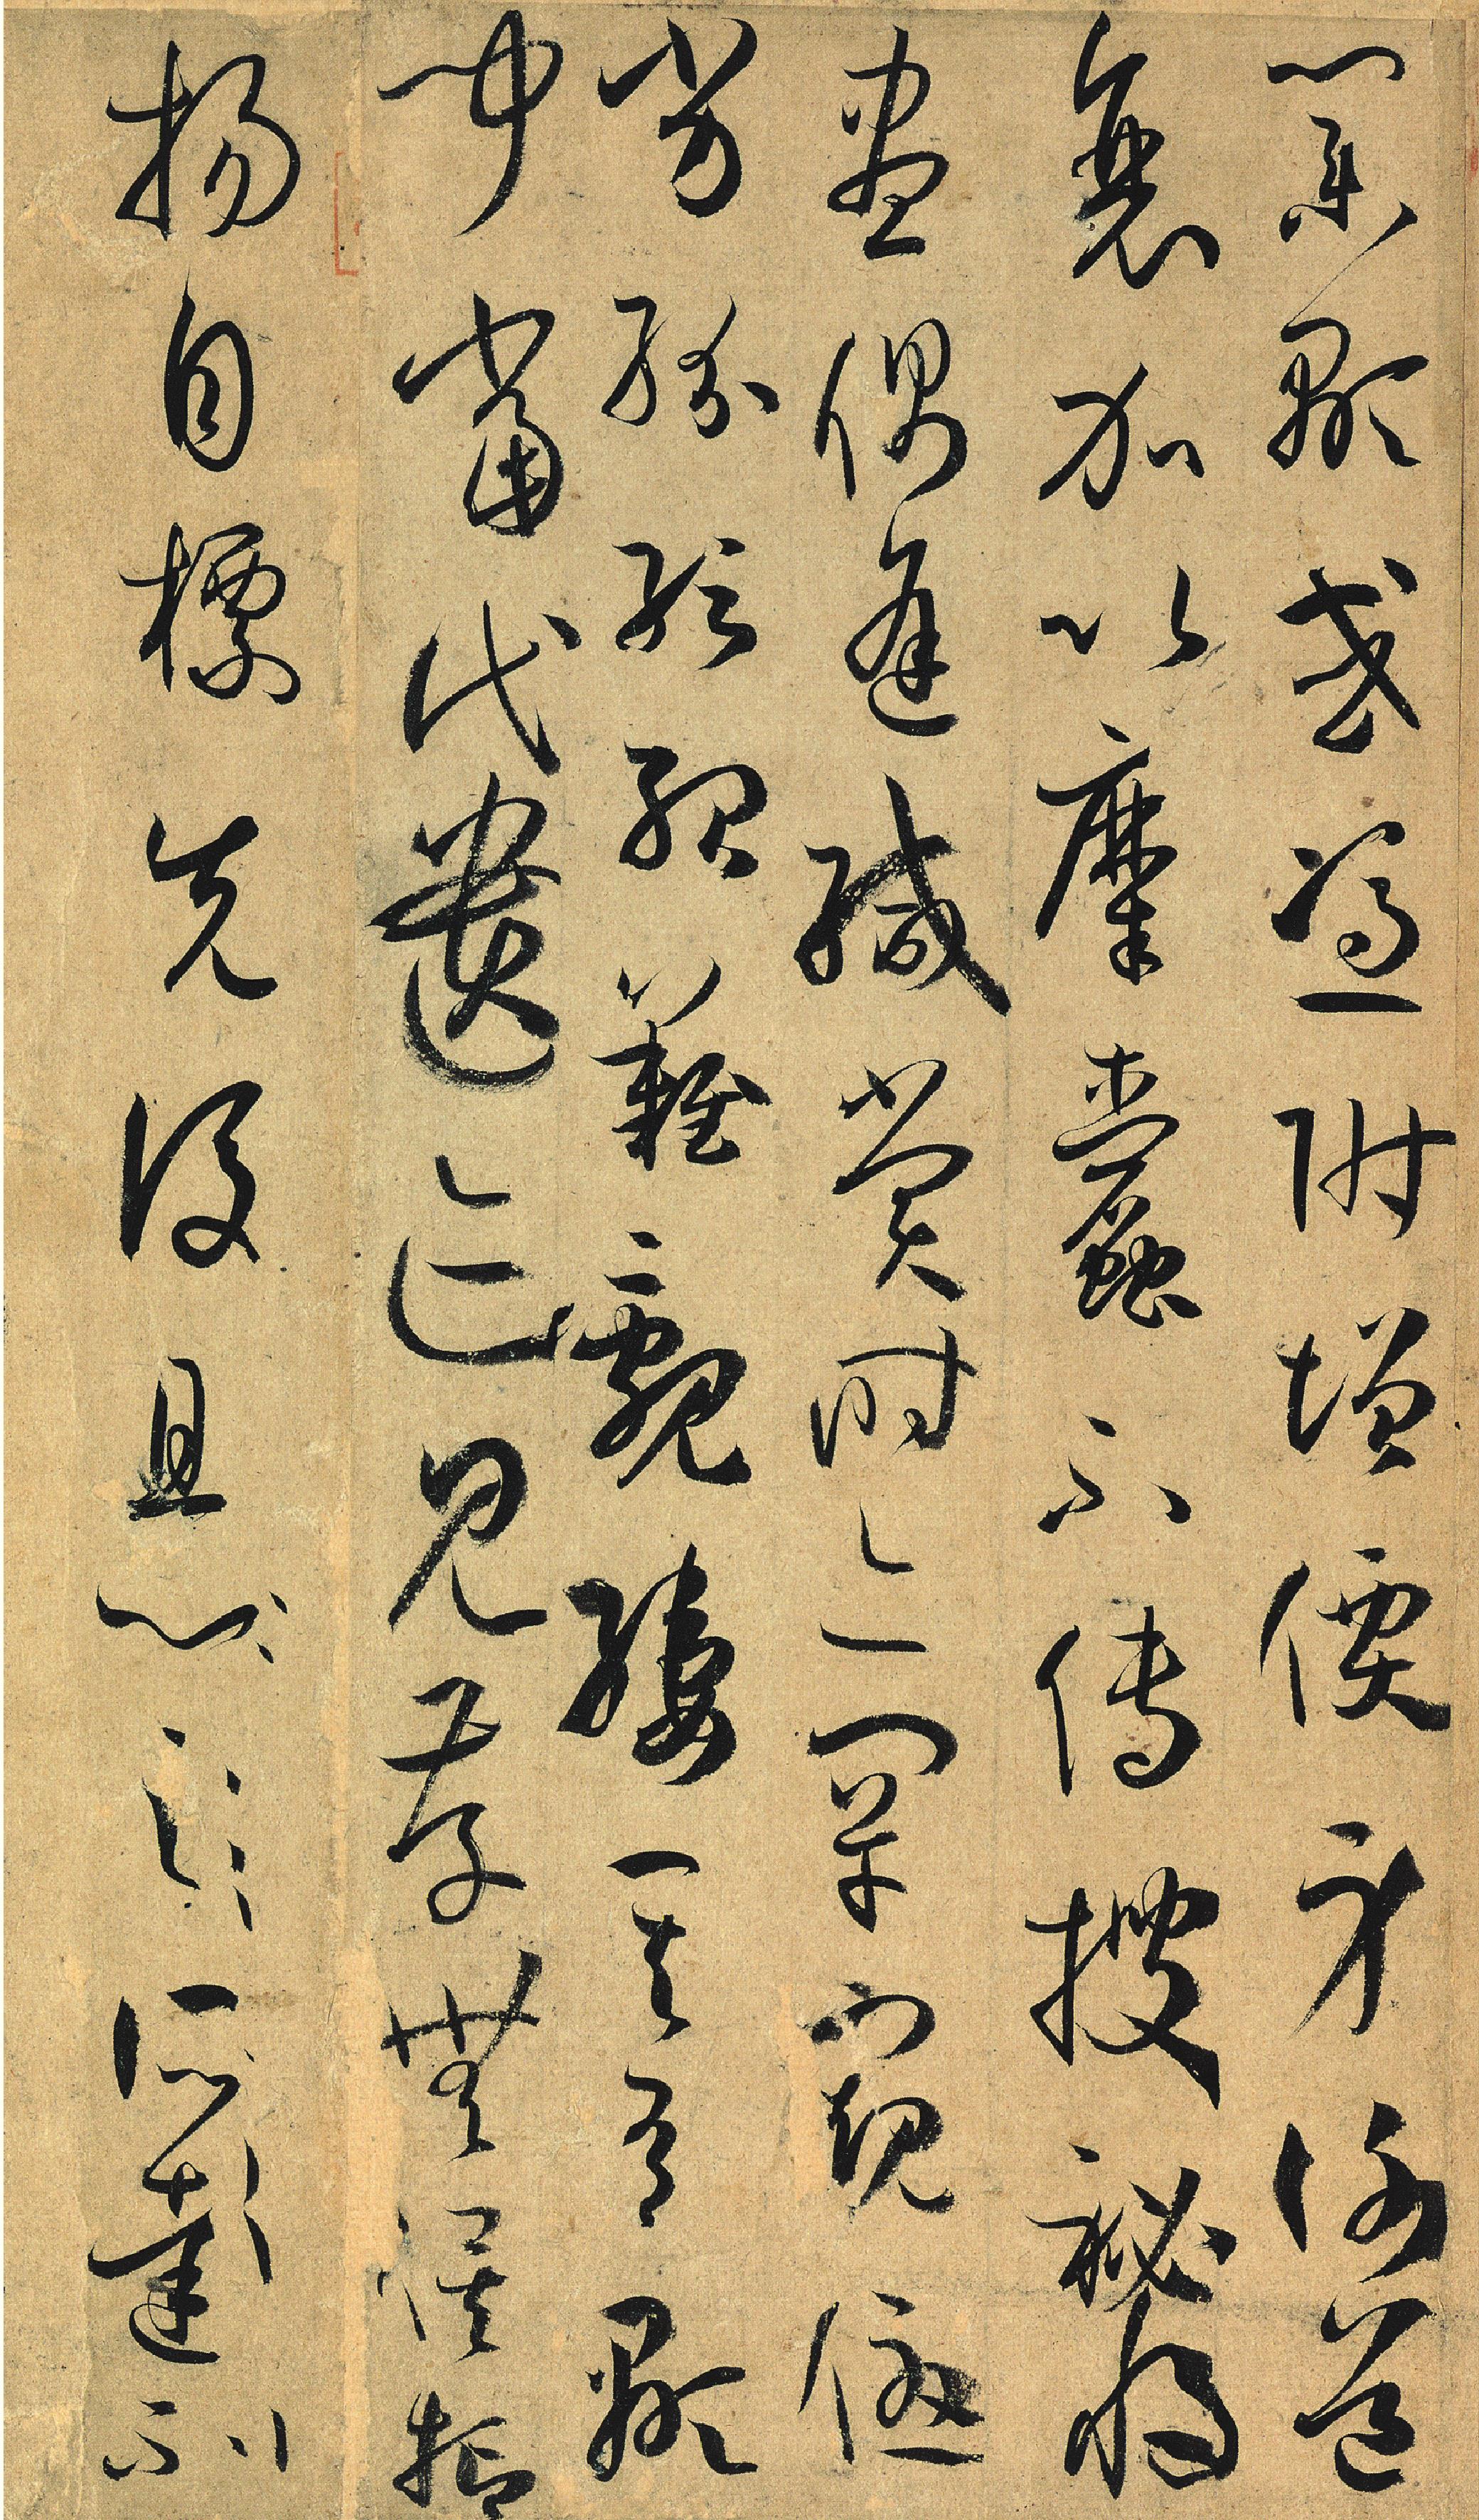 業顯或憑附增價身謝道
衰加以糜蠹不傳搜秘將
盡偶逢緘賞時亦罕窺優
劣紛紜殆難覼縷其有顯
聞當代遺迹見存無俟抑
揚自標先後且